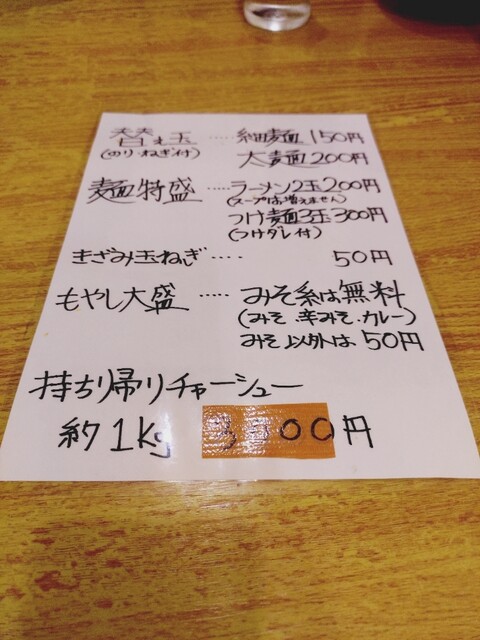 替え玉 ····· 細麺 150円
(のり・ねぎ付) 太麺 200円
麺特盛 ····· ラーメン2玉 200円
(スープは増えません)
つけ麺3玉 300円
(つけダレ付)
きざみ玉ねぎ ···· 50円
もやし大盛 ····· みそ系は無料
(みそ・辛みそ・カレー)
みそ以外は 50円
持ち帰りチャーシュー
約1kg 円